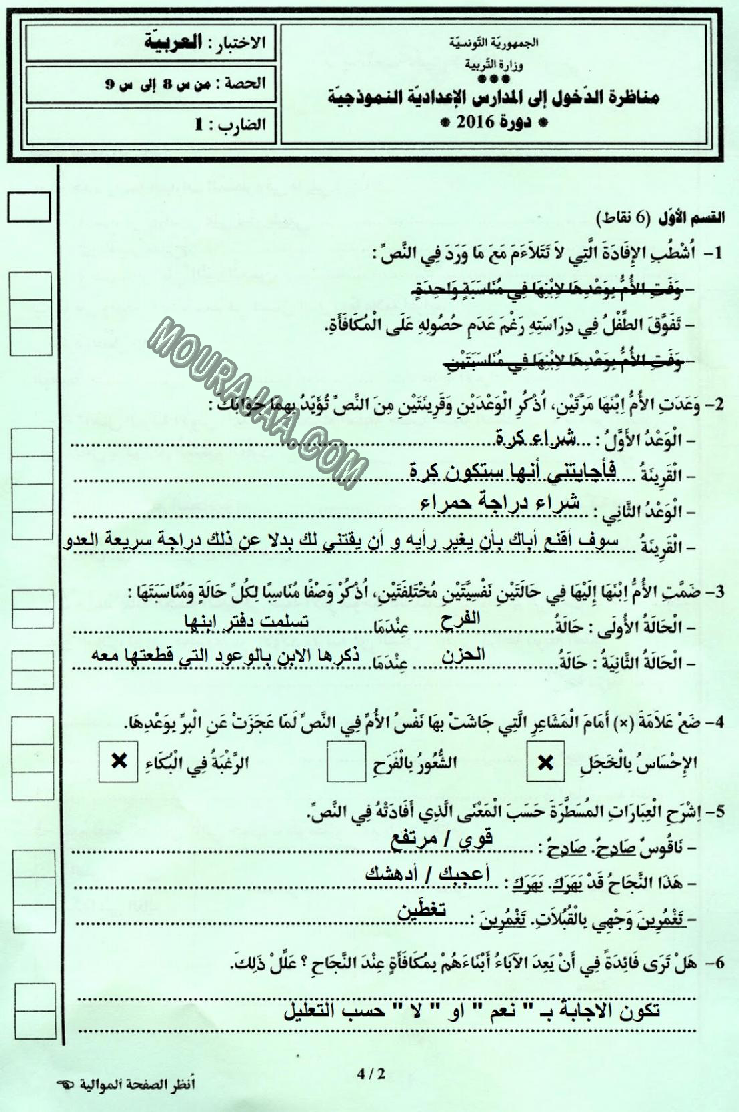 الجمهورية التونسية
وزارة التربية
مناظرة الدّخول إلى المدارس الإعداديّة النموذجيّة
* دورة 2016 *
الاختبار : العربيّة
الحصة : من س 8 إلى س 9
الضارب : 1
القسم الأوّل (6 نقاط)
1- أُشْطُبِ الإِفَادَةَ الَّتِي لاَ تَتَلاَءَمَ مَعَ مَا وَرَدَ فِي النَّصِّ :
- وَفَتِ الأُمُّ بِوَعْدِهَا لاِبْنِهَا فِي مُنَاسَبَةٍ وَاحِدَةٍ.
- تَفَوَّقَ الطِّفْلُ فِي دِرَاسَتِهِ رَغْمَ عَدَمِ حُصُولِهِ عَلَى الْمُكَافَأَةِ.
- وَفَتِ الأُمُّ بِوَعْدِهَا لاِبْنِهَا فِي مُنَاسَبَتَيْنِ.
MOURAJAA.COM
2- وَعَدَتِ الأُمُّ اِبْنَهَا مَرَّتَيْنِ، اُذْكُرِ الْوَعْدَيْنِ وَقَرِينَتَيْنِ مِنَ النَّصِّ تُؤَيِّدُ بِهِمَا جَوَابَكَ :
- الْوَعْدُ الأَوَّلُ : شراء كرة
- الْقَرِينَةُ فأجابتني أنها ستكون كرة
- الْوَعْدُ الثَّانِي : شراء دراجة حمراء
- الْقَرِينَةُ سوف أقنع أباك بأن يغير رأيه و أن يقتني لك بدلا عن ذلك دراجة سريعة العدو
3- ضَمَّتِ الأُمُّ اِبْنَهَا إِلَيْهَا فِي حَالَتَيْنِ نَفْسِيَّتَيْنِ مُخْتَلِفَتَيْنِ، اُذْكُرْ وَصْفًا مُنَاسِبًا لِكُلِّ حَالَةٍ وَمُنَاسَبَتَهَا :
- الْحَالَةُ الأُولَى : حَالَةُ الفرح عِنْدَمَا تسلمت دفتر ابنها
- الْحَالَةُ الثَّانِيَةُ : حَالَةُ الحزن عِنْدَمَا ذكرها الابن بالوعود التي قطعتها معه
4- ضَعْ عَلاَمَةَ (×) أَمَامَ الْمَشَاعِرِ الَّتِي جَاشَتْ بِهَا نَفْسُ الأُمِّ فِي النَّصِّ لَمَا عَجَزَتْ عَنِ الْبِرِّ بِوَعْدِهَا.
الإِحْسَاسُ بِالْخَجَلِ × الشُّعُورُ بِالْفَرَحِ الرَّغْبَةُ فِي الْبُكَاءِ ×
5- اِشْرَحِ الْعِبَارَاتِ المُسَطَّرَةَ حَسَبَ الْمَعْنَى الَّذِي أَفَادَتْهُ فِي النَّصِّ.
- نَاقُوسٌ صَادِحٌ. صَادِحٌ : قوي / مرتفع
- هَذَا النَّجَاحُ قَدْ بَهَرَكَ. بَهَرَكَ : أعجبك / أدهشك
- تَغْمُرِينَ وَجْهِي بِالْقُبُلاَتِ. تَغْمُرِينَ : تغطّين
6- هَلْ تَرَى فَائِدَةً فِي أَنْ يَعِدَ الآبَاءُ أَبْنَاءَهُمْ بِمُكَافَأَةٍ عِنْدَ النَّجَاحِ ؟ عَلِّلْ ذَلِكَ.
تكون الاجابة بـ " نعم " او " لا " حسب التعليل
4 / 2
أنظر الصفحة الموالية